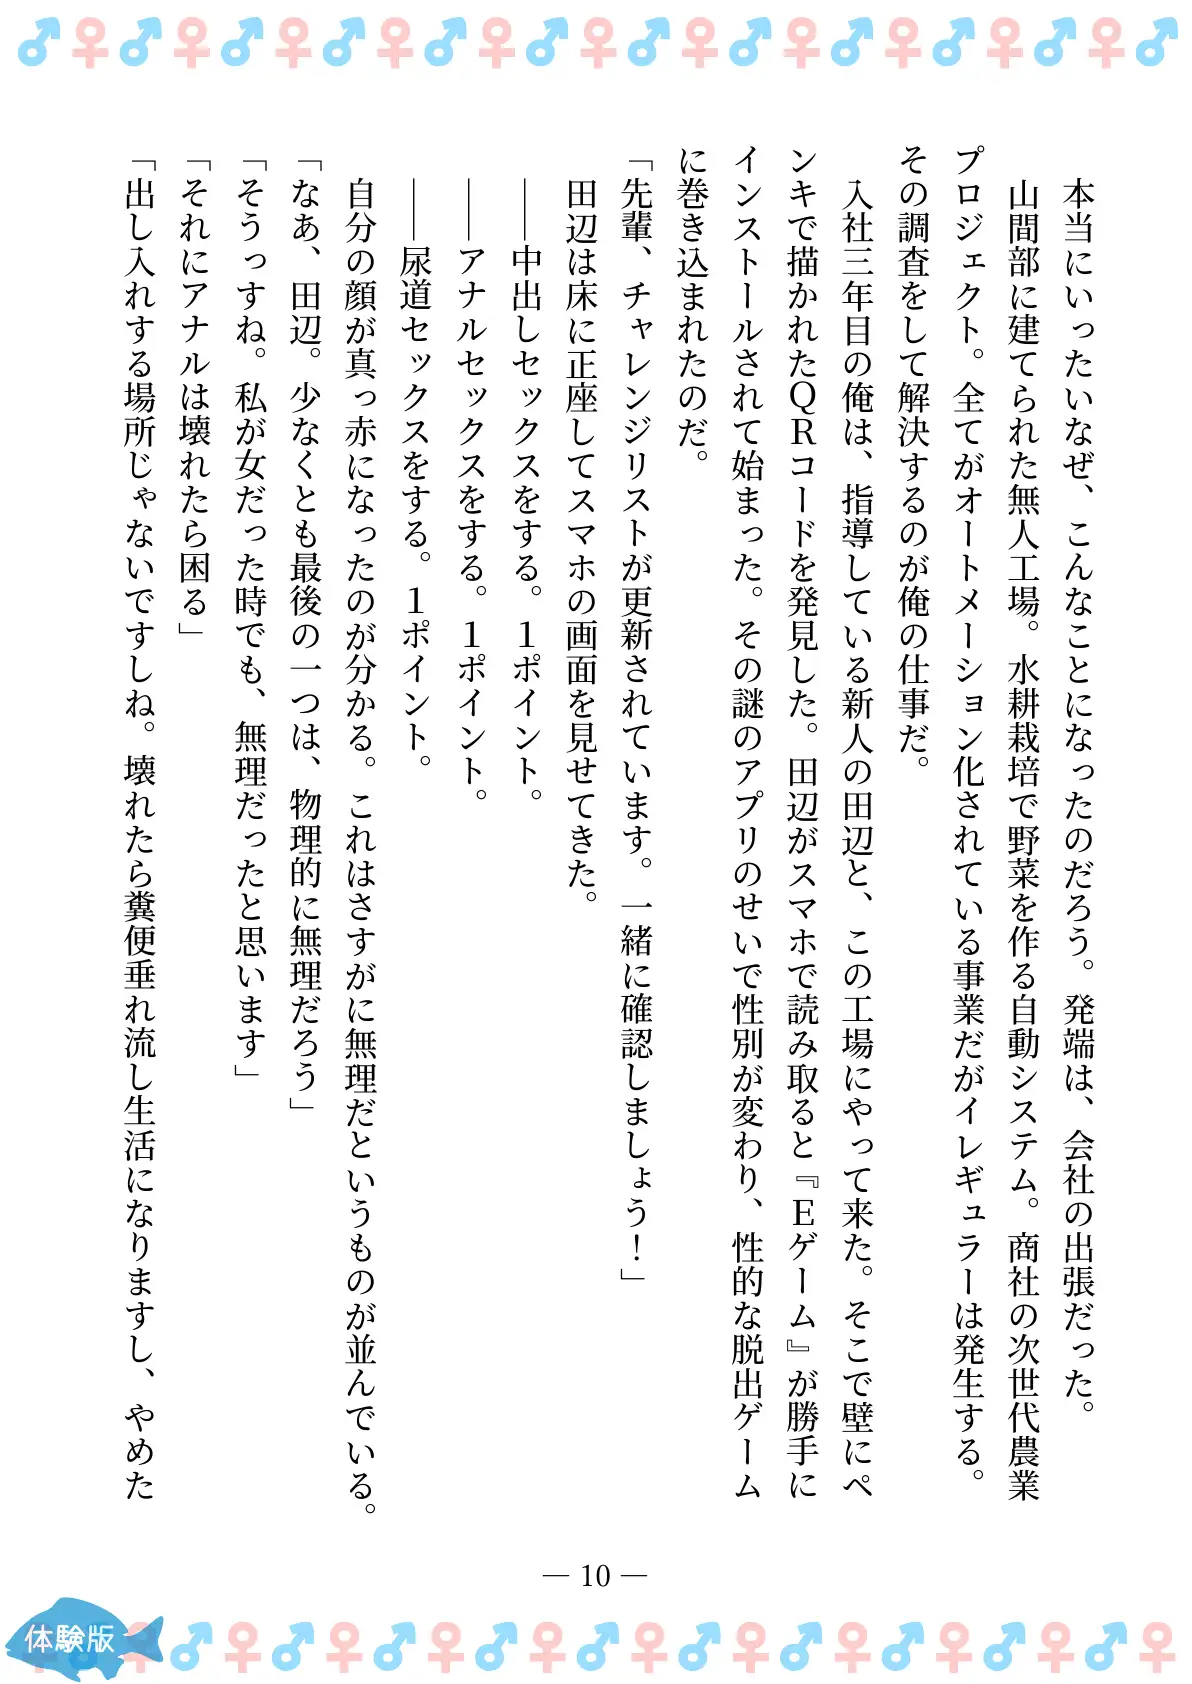 本当にいったいなぜ、こんなことになったのだろう。発端は、会社の出張だった。
山間部に建てられた無人工場。水耕栽培で野菜を作る自動システム。商社の次世代農業
プロジェクト。全てがオートメーション化されている事業だがイレギュラーは発生する。
その調査をして解決するのが俺の仕事だ。
入社三年目の俺は、指導している新人の田辺と、この工場にやって来た。そこで壁にペ
ンキで描かれたQRコードを発見した。田辺がスマホで読み取ると『Eゲーム』が勝手に
インストールされて始まった。その謎のアプリのせいで性別が変わり、性的な脱出ゲーム
に巻き込まれたのだ。
「先輩、チャレンジリストが更新されています。一緒に確認しましょう！」
田辺は床に正座してスマホの画面を見せてきた。
――中出しセックスをする。1ポイント。
――アナルセックスをする。1ポイント。
――尿道セックスをする。1ポイント。
自分の顔が真っ赤になったのが分かる。これはさすがに無理だというものが並んでいる。
「なあ、田辺。少なくとも最後の一つは、物理的に無理だろう」
「そうっすね。私が女だった時でも、無理だったと思います」
「それにアナルは壊れたら困る」
「出し入れする場所じゃないですしね。壊れたら糞便垂れ流し生活になりますし、やめた
― 10 ―
体験版